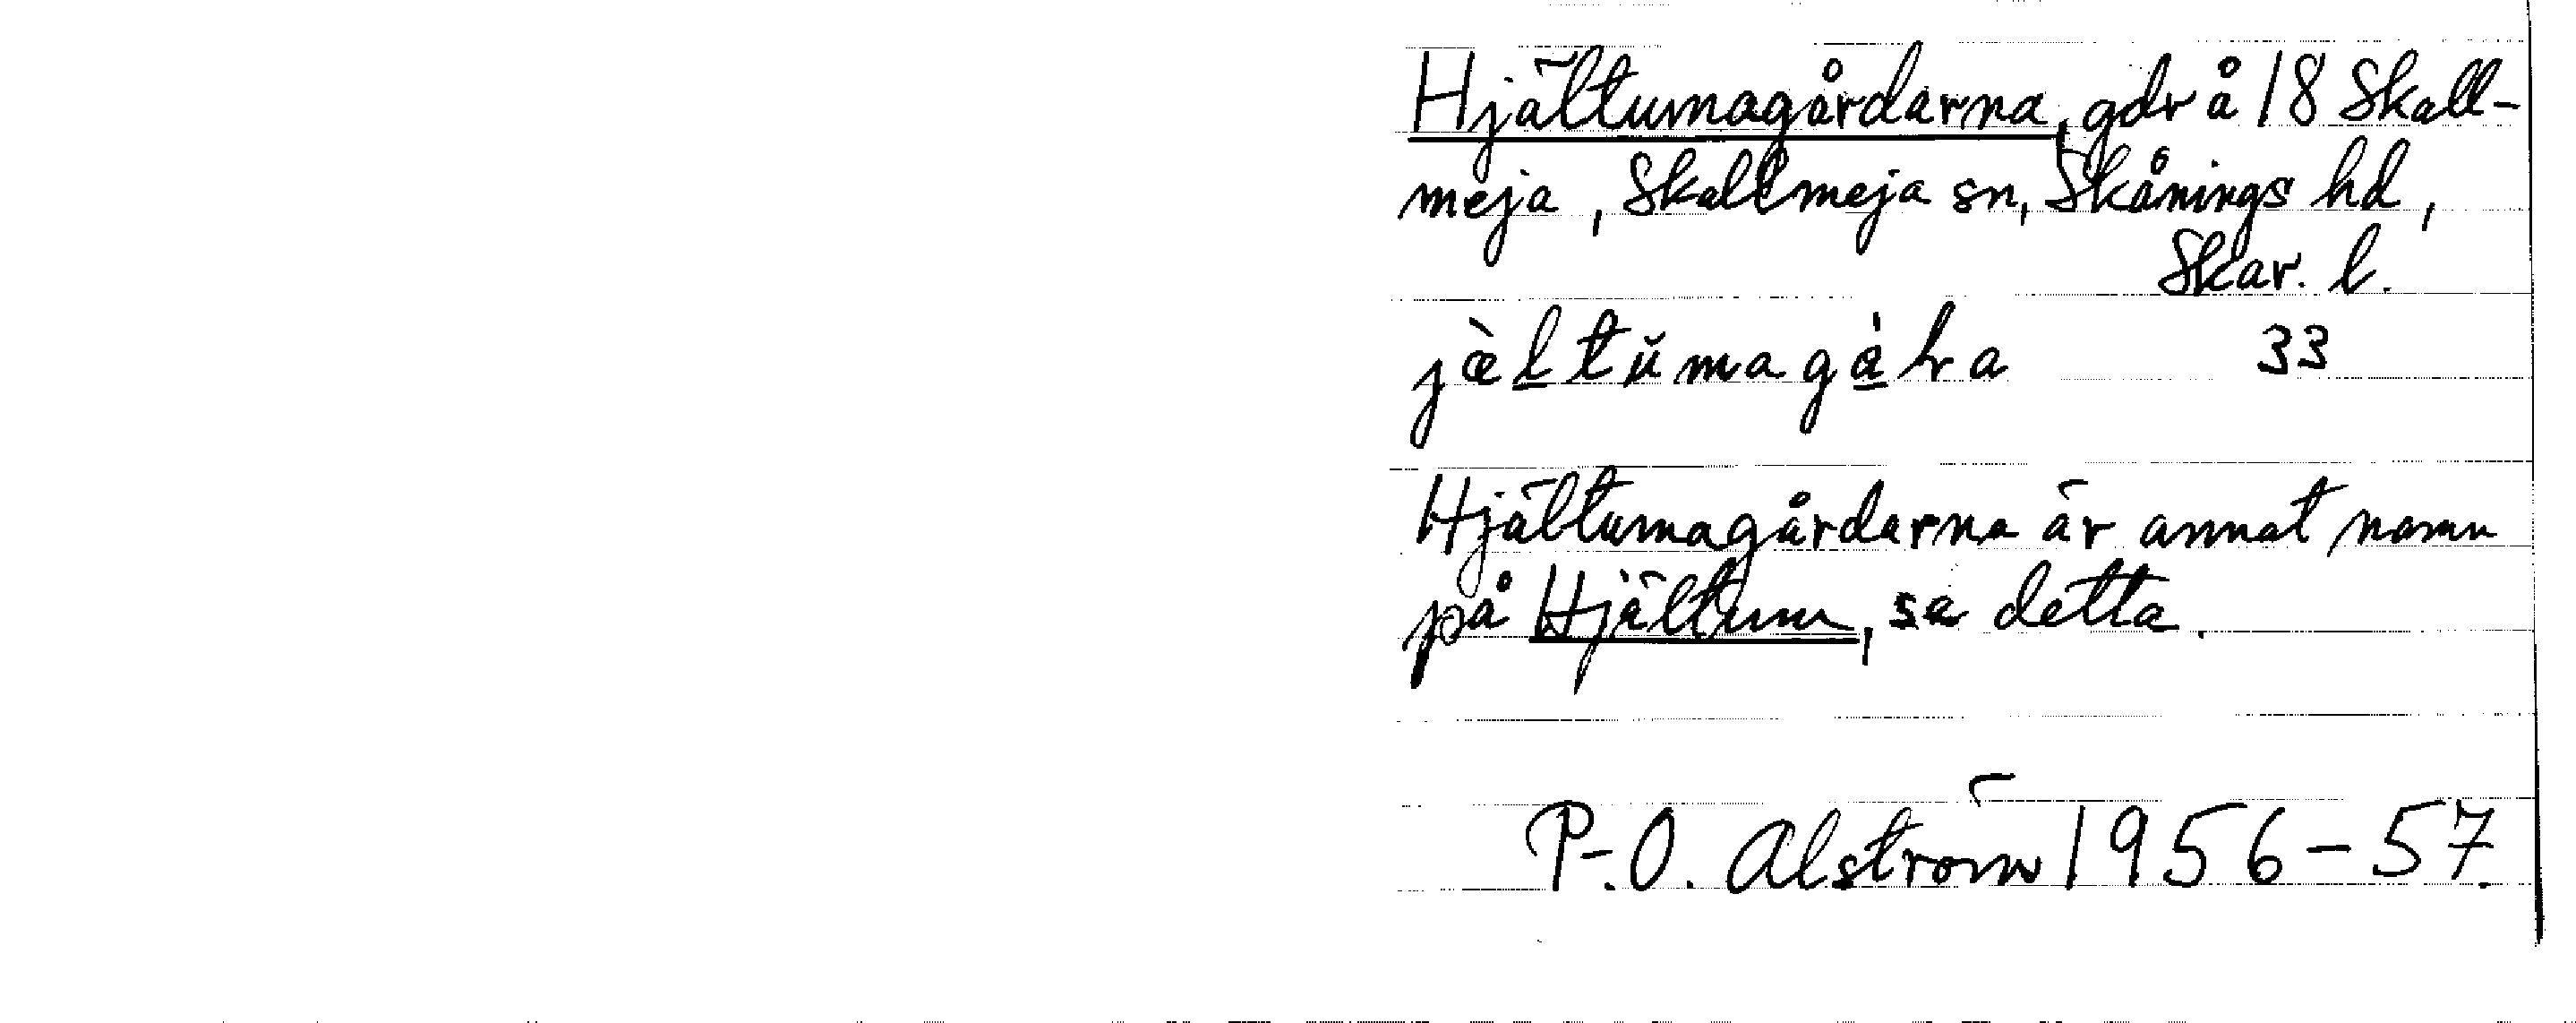 Hjältumagårdarna, gdr å 18 Skall-
meja, Skallmeja sn, Skånings hd,
Skar. l.
jæ̀ltŭmagàra 33
Hjältumagårdarna är annat namn
på Hjältum, se detta.
P-.O. Alström 1956-57.